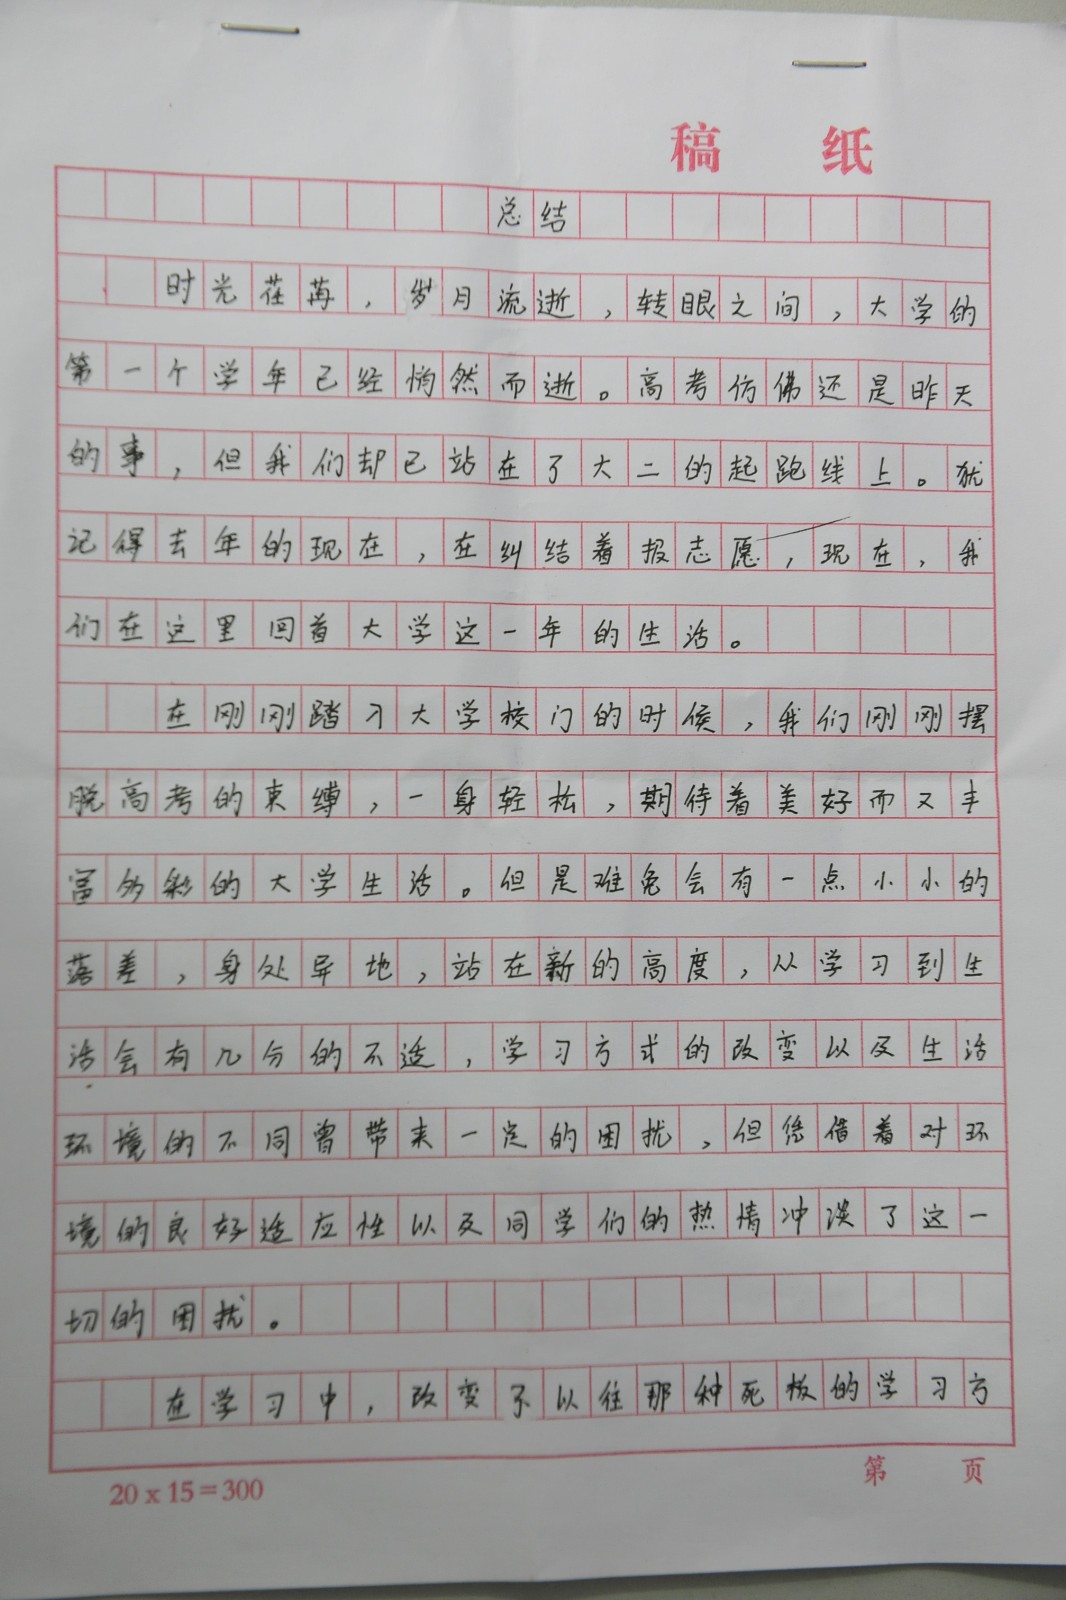 稿 纸
总结
时光荏苒，岁月流逝，转眼之间，大学的
第一个学年已经悄然而逝。高考仿佛还是昨天
的事，但我们却已站在了大二的起跑线上。犹
记得去年的现在，在纠结着报志愿，现在，我
们在这里回首大学这一年的生活。
在刚刚踏习大学校门的时候，我们刚刚摆
脱高考的束缚，一身轻松，期待着美好而又丰
富多彩的大学生活。但是难免会有一点小小的
落差，身处异地，站在新的高度，从学习到生
活会有几分的不适，学习方式的改变以及生活
环境的不同曾带来一定的困扰，但凭借着对环
境的良好适应性以及同学们的热情冲淡了这一
切的困扰。
在学习中，改变了以往那种死板的学习方
20 x 15=300
第 页